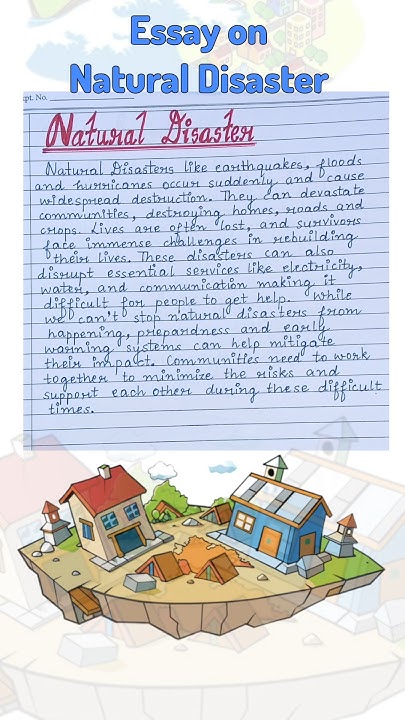 Essay on
Natural Disaster
pt. No.
Natural Disaster
Natural Disasters like earthquakes, floods
and hurricanes occur suddenly and cause
widespread destruction. They can devastate
communities, destroying homes, roads and
crops. Lives are often lost, and survivors
face immense challenges in rebuilding
their lives. These disasters can also
disrupt essential services like electricity,
water, and communication making it
difficult for people to get help. While
we can't stop natural disasters from
happening, prepardness and early
warning systems can help mitigate
their impact. Communities need to work
together to minimize the risks and
support each other during these difficult
times.